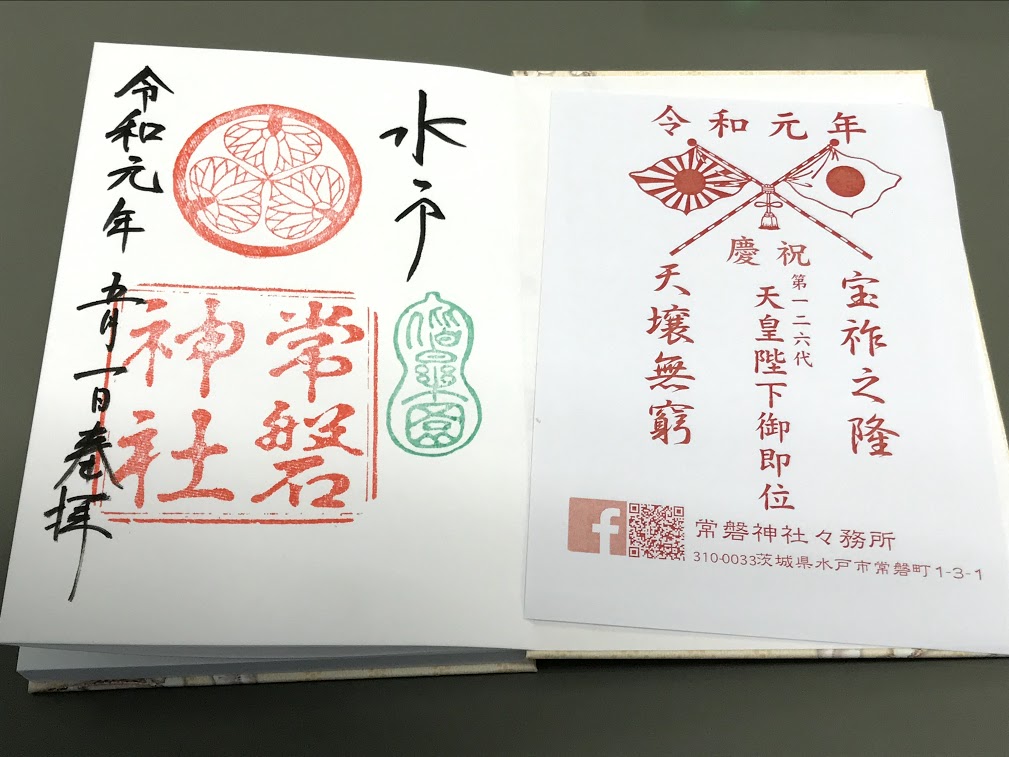 水戸
偕楽園
常磐
神社
令和元年五月一日奉拝
令和元年
慶祝
宝祚之隆
第一二六代
天皇陛下御即位
天壌無窮
常磐神社々務所
310-0033茨城県水戸市常磐町1-3-1